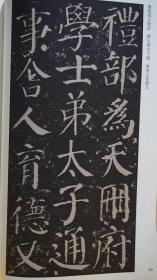 禮部爲天冊府
學士弟太子通
事舍人育德又